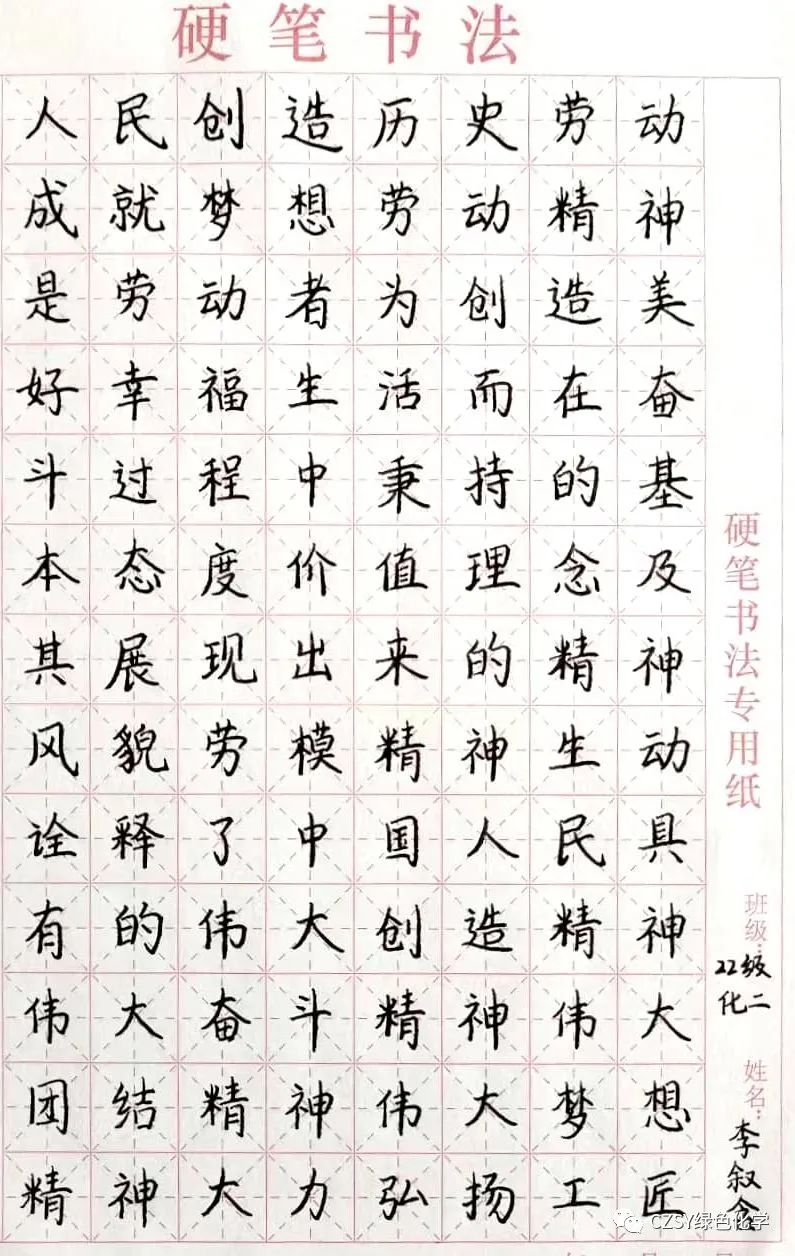 硬笔书法
人民创造历史劳动
成就梦想劳动精神
是劳动者为创造美
好幸福生活而在奋
斗过程中秉持的基
本态度价值理念及
其展现出来的精神
风貌劳模精神生动
诠释了中国人民具
有的伟大创造精神
伟大奋斗精神伟大
团结精神伟大梦想
精神大力弘扬工匠
硬笔书法专用纸
班级：
22级
化二
姓名：
李叙含
CZSY绿色化学